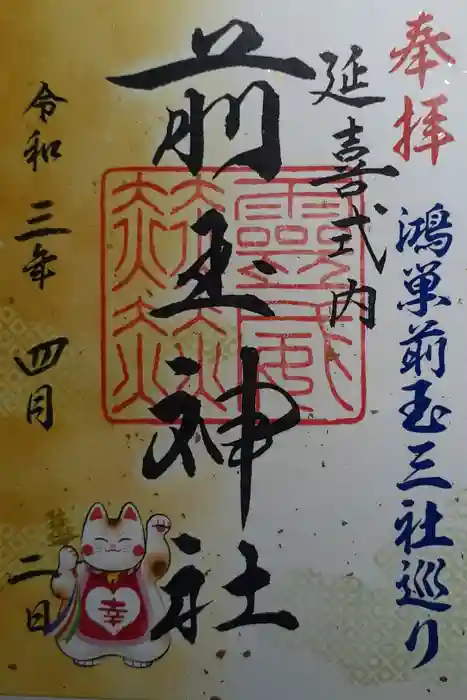 奉拝
鴻巣前玉三社巡り
延喜式内
前玉神社
靈威赫赫
令和三年四月二日
幸